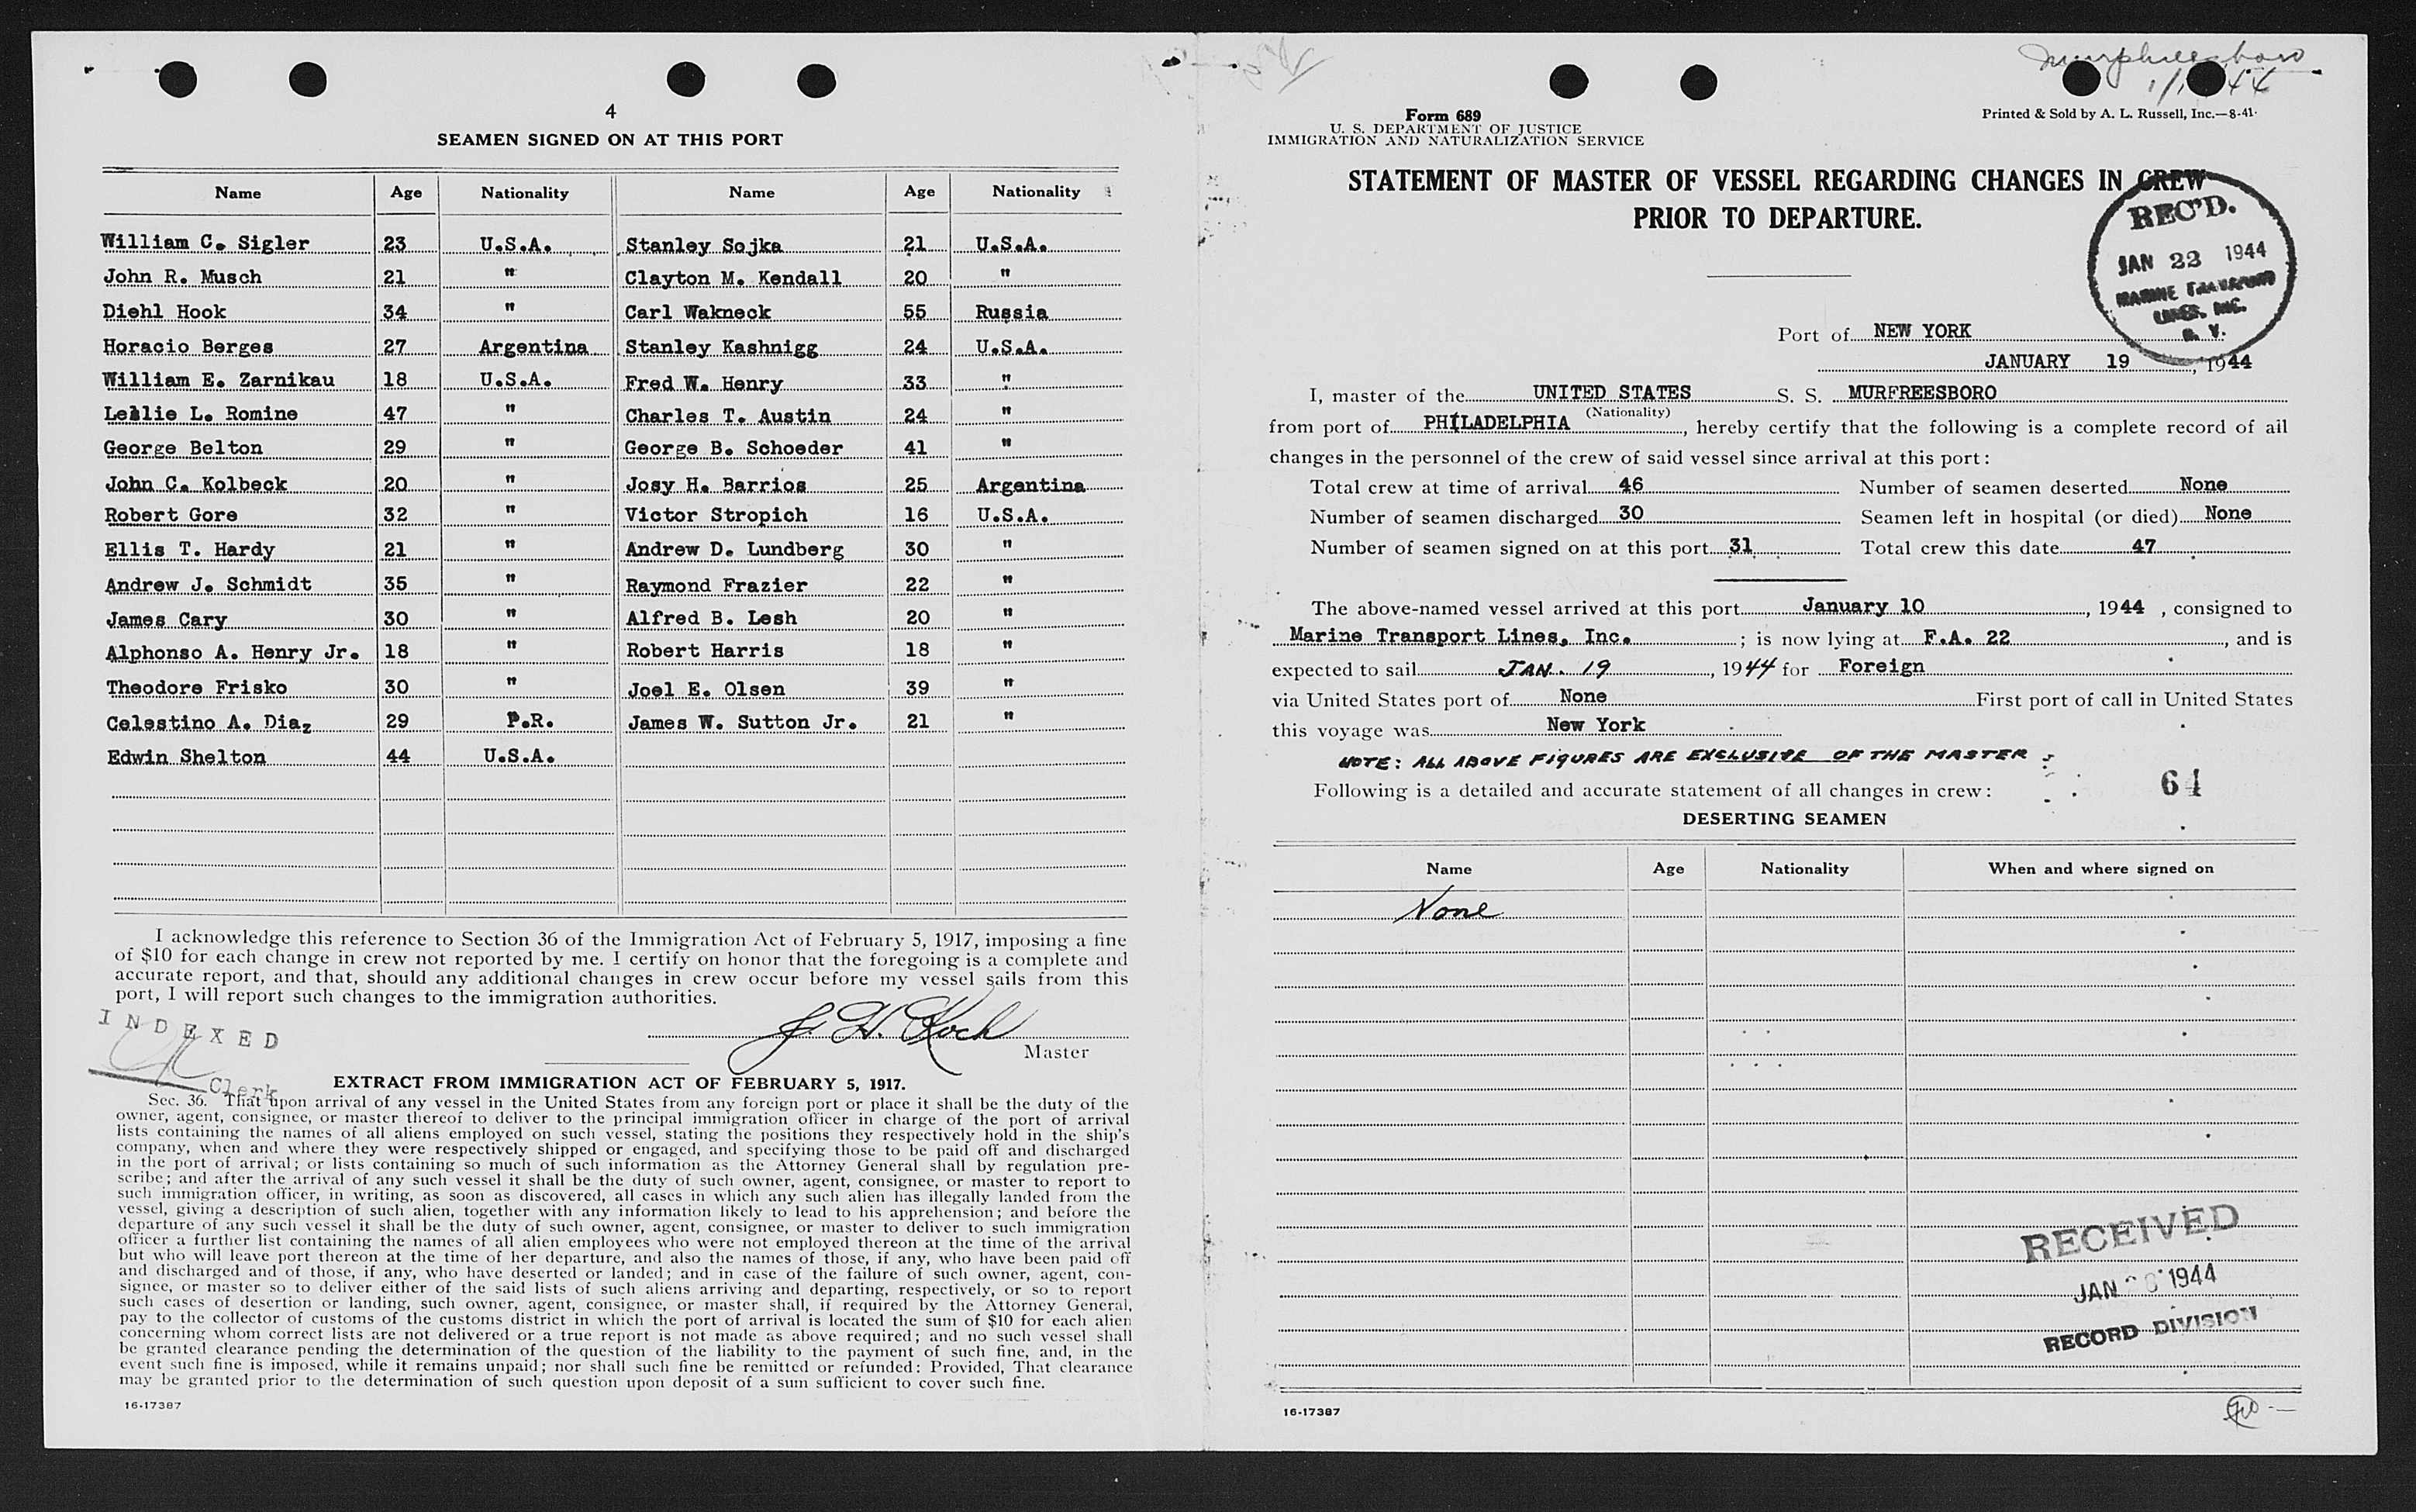 4
SEAMEN SIGNED ON AT THIS PORT
Name Age Nationality Name Age Nationality
William C. Sigler 23 U.S.A. Stanley Sojka 21 U.S.A.
John R. Musch 21 " Clayton M. Kendall 20 "
Diehl Hook 34 " Carl Wakneck 55 Russia
Horacio Berges 27 Argentina Stanley Kashnigg 24 U.S.A.
William E. Zarnikau 18 U.S.A. Fred W. Henry 33 "
Leslie L. Romine 47 " Charles T. Austin 24 "
George Belton 29 " George B. Schoeder 41 "
John C. Kolbeck 20 " Josy H. Barrios 25 Argentina
Robert Gore 32 " Victor Stropich 16 U.S.A.
Ellis T. Hardy 21 " Andrew D. Lundberg 30 "
Andrew J. Schmidt 35 " Raymond Frazier 22 "
James Cary 30 " Alfred B. Lesh 20 "
Alphonso A. Henry Jr. 18 " Robert Harris 18 "
Theodore Frisko 30 " Joel E. Olsen 39 "
Celestino A. Diaz 29 P.R. James W. Sutton Jr. 21 "
Edwin Shelton 44 U.S.A.
I acknowledge this reference to Section 36 of the Immigration Act of February 5, 1917, imposing a fine
of $10 for each change in crew not reported by me. I certify on honor that the foregoing is a complete and
accurate report, and that, should any additional changes in crew occur before my vessel sails from this
port, I will report such changes to the immigration authorities.
INDEXED
J. H. Koch
Master
Clerk
EXTRACT FROM IMMIGRATION ACT OF FEBRUARY 5, 1917.
Sec. 36. That upon arrival of any vessel in the United States from any foreign port or place it shall be the duty of the
owner, agent, consignee, or master thereof to deliver to the principal immigration officer in charge of the port of arrival
lists containing the names of all aliens employed on such vessel, stating the positions they respectively hold in the ship's
company, when and where they were respectively shipped or engaged, and specifying those to be paid off and discharged
in the port of arrival; or lists containing so much of such information as the Attorney General shall by regulation pre-
scribe; and after the arrival of any such vessel it shall be the duty of such owner, agent, consignee, or master to report to
such immigration officer, in writing, as soon as discovered, all cases in which any such alien has illegally landed from the
vessel, giving a description of such alien, together with any information likely to lead to his apprehension; and before the
departure of any such vessel it shall be the duty of such owner, agent, consignee, or master to deliver to such immigration
officer a further list containing the names of all alien employees who were not employed thereon at the time of the arrival
but who will leave port thereon at the time of her departure, and also the names of those, if any, who have been paid off
and discharged and of those, if any, who have deserted or landed; and in case of the failure of such owner, agent, con-
signee, or master so to deliver either of the said lists of such aliens arriving and departing, respectively, or so to report
such cases of desertion or landing, such owner, agent, consignee, or master shall, if required by the Attorney General,
pay to the collector of customs of the customs district in which the port of arrival is located the sum of $10 for each alien
concerning whom correct lists are not delivered or a true report is not made as above required; and no such vessel shall
be granted clearance pending the determination of the question of the liability to the payment of such fine, and, in the
event such fine is imposed, while it remains unpaid; nor shall such fine be remitted or refunded: Provided, That clearance
may be granted prior to the determination of such question upon deposit of a sum sufficient to cover such fine.
16-17387
Form 689
U. S. DEPARTMENT OF JUSTICE
IMMIGRATION AND NATURALIZATION SERVICE
Printed & Sold by A. L. Russell, Inc.—8-41.
STATEMENT OF MASTER OF VESSEL REGARDING CHANGES IN CREW
PRIOR TO DEPARTURE.
REC'D.
JAN 22 1944
MARINE TRANSPORT
LINES, INC.
N. Y.
Port of NEW YORK
JANUARY 19, 1944
I, master of the UNITED STATES S. S. MURFREESBORO
(Nationality)
from port of PHILADELPHIA, hereby certify that the following is a complete record of all
changes in the personnel of the crew of said vessel since arrival at this port:
Total crew at time of arrival 46 Number of seamen deserted None
Number of seamen discharged 30 Seamen left in hospital (or died) None
Number of seamen signed on at this port 31 Total crew this date 47
The above-named vessel arrived at this port January 10, 1944, consigned to
Marine Transport Lines, Inc.; is now lying at F.A. 22, and is
expected to sail JAN. 19, 1944 for Foreign
via United States port of None First port of call in United States
this voyage was New York
NOTE: ALL ABOVE FIGURES ARE EXCLUSIVE OF THE MASTER
Following is a detailed and accurate statement of all changes in crew:
64
DESERTING SEAMEN
Name Age Nationality When and where signed on
None
RECEIVED
JAN 1944
RECORD DIVISION
16-17387